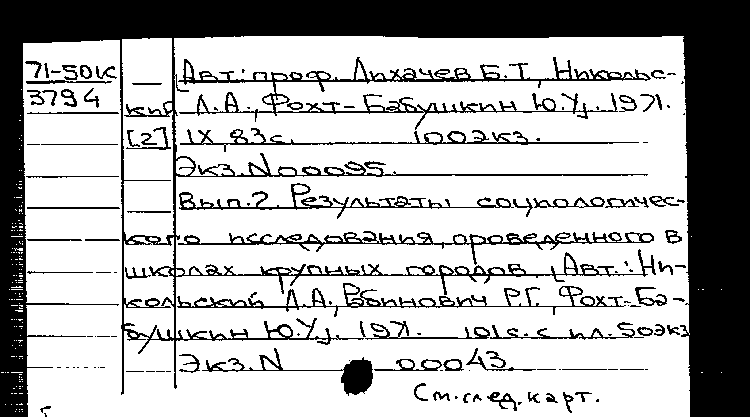 71-501с [Авт.: проф. Лихачев Б.Т., Никольс-
3794 кий Л.А., Фохт-Бабушкин Ю.У]. 1971.
[2] IX, 83с. 100экз.
Экз.N00095.
Вып.2. Результаты социологичес-
кого исследования, проведенного в
школах крупных городов. [Авт.: Ни-
кольский Л.А., Рабинович Р.Г., Фохт-Ба-
бушкин Ю.У]. 1971. 101с. с ил. 50экз
Экз.N 00043.
См. след. карт.